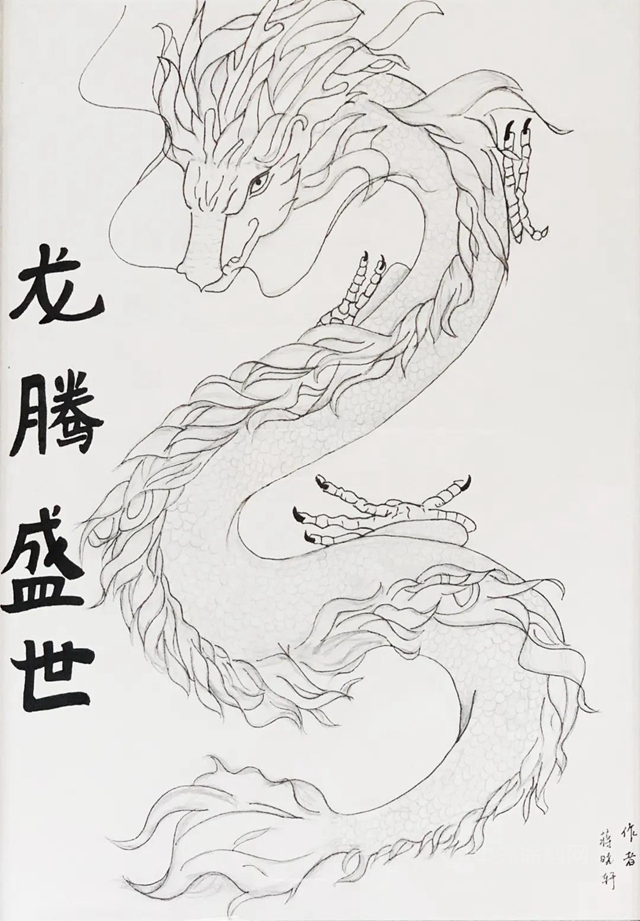 龙腾盛世
作者
蒋晓轩